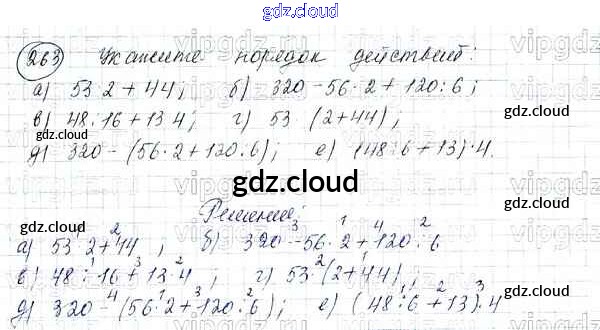 gdz.cloud
263 Укажите порядок действий:
а) 53·2+44; б) 320-56·2+120:6;
в) 48:16+13·4; г) 53·(2+44);
д) 320-(56·2+120:6); е) (48:6+13)·4.
gdz.cloud
gdz.cloud
gdz.cloud
Решение:
gdz.cloud
а) 53·2+²44, б) 320-³56·¹2+⁴120:²6
в) 48:¹16+³13·²4; г) 53·²(2+¹44),
gdz.cloud
д) 320-⁴(56·¹2+³120:²6); е) (48:¹6+²13)·³4